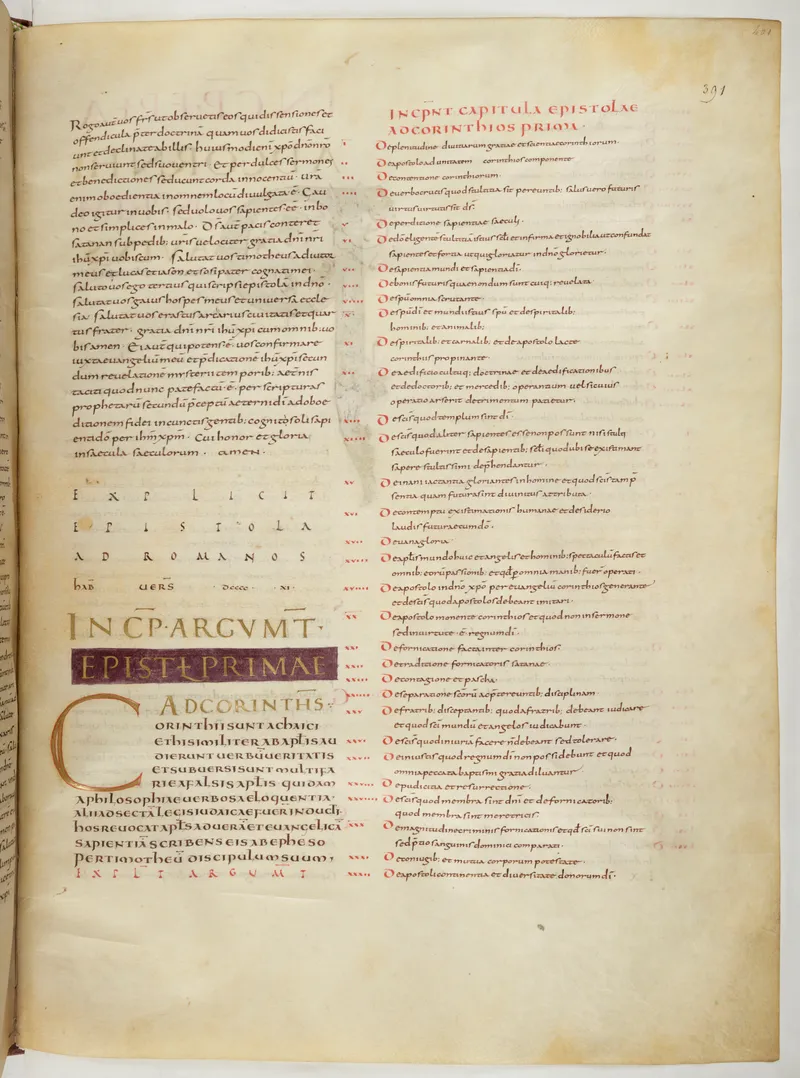 391
Rogo aut vos frs ut observetis eos qui dissensiones et
offendicula pter doctrinā quam vos didicistis faci
unt et declinate ab illis. huiusmodi enī xpo dno nro
non serviunt sed suo ventri. et per dulces sermones
et benedictiones seducunt corda innocentiū. vra
enim oboedientia in omnem locū divulgata ē. Gau
deo igitur in vobis. sed volo vos sapientes eē in bo
no et simplices in malo. Ds aut pacis conteret
satanan sub pedib; vris velociter gratia dni nri
ihu xpi vobiscum. salutat vos timotheus adiutor
meus et lucas et iason et sosipater cognati mei.
saluto vos ego tertius qui scripsi epistolā in dno.
salutat vos gaius hospes meus et universa eccle
sia. salutat vos erastus arcarius civitatis et quar
tus frater. gratia dni nri ihu xpi cum omnib; vo
bis amen. Ei aut qui potens ē. vos confirmare
iuxta evangeliū meū et pdicationē ihu xpi secun
dum revelationē mysterii temporib; aeternis
taciti quod nunc patefactū ē. per scripturas
prophetarū secundū pceptū aeterni di ad oboe
ditionem fidei in cunctis gentib; cognito soli sapi
enti do per ihm xpm. Cui honor et gloria
in saecula saeculorum. amen.
EXPLICIT
EPISTOLA
AD ROMANOS
HAB VERS DCCCC XI
INCP ARGVMT
EPISTL PRIMAE
AD CORINTHS
CORINTHII SUNT ACHAICI
ET HI SIMILITER AB APLIS AU
DIERUNT UERBŪ UERITATIS
ET SUBUERSI SUNT MULTIFA
RIE A FALSIS APLIS QUIDAM
A PHILOSOPHIAE UERBOSA ELOQUENTIA.
ALII AD SECTĀ LEGIS IUDAICAE FUER INDUCTI
HOS REUOCAT APLS AD UERĀ ET EUANGELICĀ
SAPIENTIĀ SCRIBENS EIS AB EPHESO
PER TIMOTHEŪ DISCIPULUM SUUM;
EXPLT ARGUMT
INCPNT CAPITULA EPISTOLAE
AD CORINTHIOS PRIMA.
De plenitudine divitiarum gratiae et scientiae corinthiorum.
De apostolo ad unitatem corinthios componente
De contentione corinthiorum.
De verbo crucis quod stultitia sit pereuntib; salus vero futuris
virtus virtutis di.
De perditione sapientiae saeculi.
De dō eligente stultitiā istius seli et infirma et ignobilia ut confundat
sapientes et fortia ut qui gloriatur in dno glorietur.
De sapientia mundi et sapientia di.
De bonis futuris quae nondum sint cuiq; revelata
De spu omnia scrutante.
De spu di et mundi istius spu et de spiritalib;
hominib; et animalib;
De spiritalib; et carnalib; et de apostolo lacte
corinthiis propinante.
De aedificio cultuq; doctrinae et de aedificationibus
et de doctorib; et mercedib; operantium vel si cuius
opera arserit detrimentum patietur.
De scis quod templum sint di.
De scis quod aliter sapientes esse non possunt nisi stulti
saeculo fuerint et de sapientib; seli quod ubi se existimant
sapere stultissimi dephendantur.
De inani iactantia gloriantis in homine et quod scis tam p
sentia quam futura sint divinitus attributa.
De contemptu existimationis humanae et desiderio
laudis futurae cum do.
De vana gloria.
De aplis mundo huic et angelis et hominib; spectaculū factis et
omnib; eorū passionib; et qd pomnia manib; fuer operati.
De apostolo in dno xpo per evangeliū corinthios generante
et de scis quod apostolos debeant imitari.
De apostolo monente corinthios et quod non in sermone
sed in virtute ē regnum di.
De fornicatione facta inter corinthios.
De traditione fornicatoris satanae.
De contagione et pascha.
De separatione scorū ac ptereuntib; disciplinam.
De fratrib; disceptantib; quod a fratrib; debeant iudicare
et quod sci mundū et angelos iudicabunt.
De scis quod iniuriā facere n debeant sed tolerare.
De iniustis quod regnum di non possidebunt et quod
omnia peccata baptismi gratia diluantur
De pudicitia et resurrectione.
De scis quod membra sint dni et de fornicatorib;
quod membra sint meretricis.
De magnitudine criminis fornicationis et qd sci sui non sint
sed ptio sanguinis dominici comparati.
De coniugib; et mutua corporum potestate.
De apostoli continentia et diversitate donorum di.